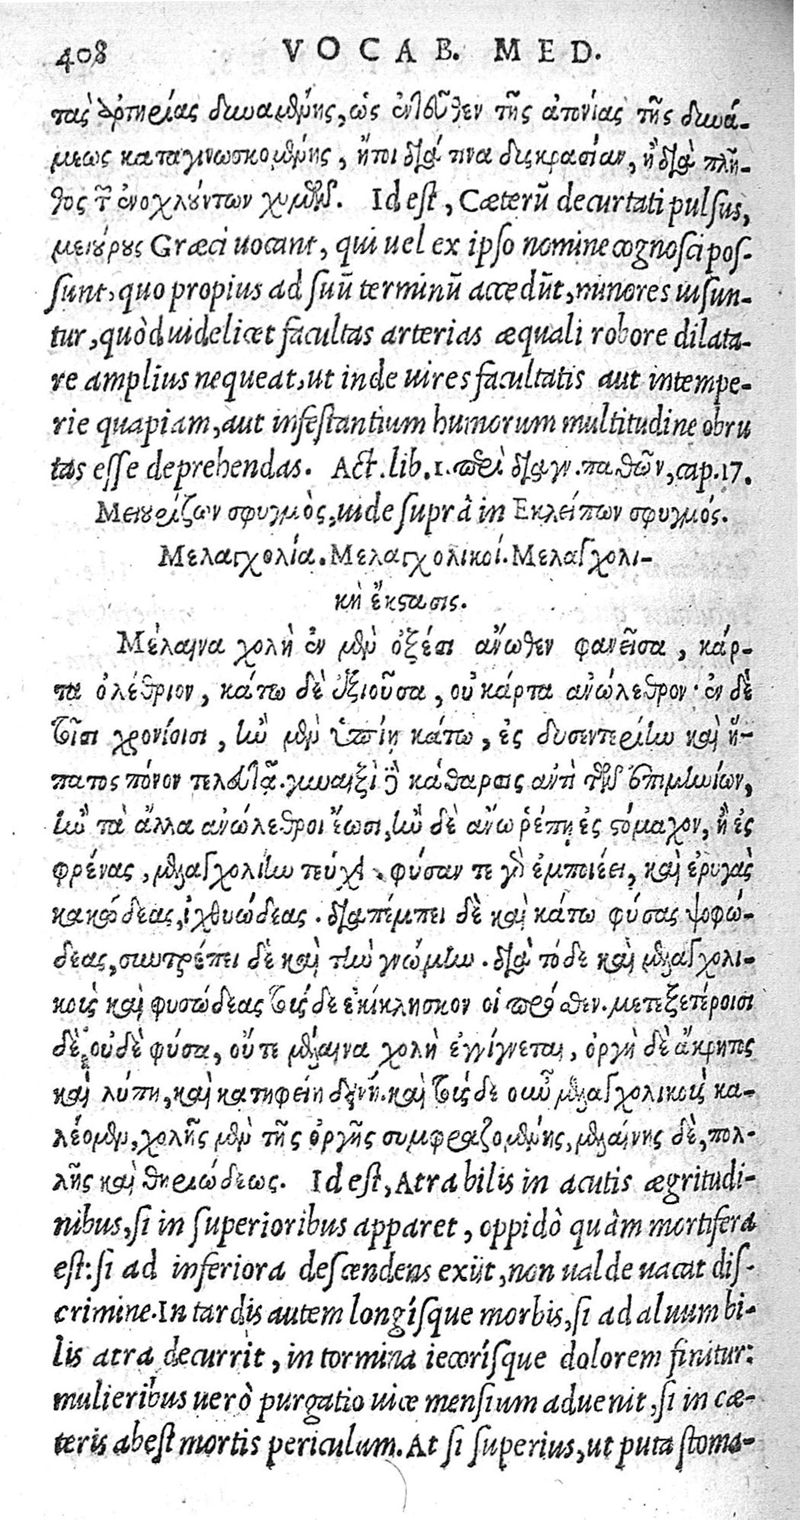 408 VOCAB. MED.
τὰς ἀρτηρίας δυναμένης, ὡς ἐντεῦθεν τῆς ἀτονίας τῆς δυνά-
μεως καταγινωσκομένης, ἤτοι διά τινα δυσκρασίαν, ἢ διὰ πλῆ-
θος τ͂ ἐνοχλούντων χυμῶν. Id est, Cæterũ decurtati pulsus,
μειούρους Græci uocant, qui uel ex ipso nomine cognosci pos-
sunt, quo propius ad suũ terminũ accedũt, minores uisun-
tur, quòd uidelicet facultas arterias æquali robore dilata-
re amplius nequeat, ut inde uires facultatis aut intempe-
rie quapiam, aut infestantium humorum multitudine obru
tas esse deprehendas. Act. lib. 1. περὶ διαγν. παθῶν, cap. 17.
Μειουρίζων σφυγμὸς, uide suprà in Εκλείπων σφυγμός.
Μελαγχολία. Μελαγχολικοί. Μελαγχολι-
κὴ ἔκστασις.
Μέλαινα χολὴ ἐν μὲν ὀξέσι ἄνωθεν φανεῖσα, κάρ-
τα ὀλέθριον, κάτω δὲ ἐξιοῦσα, οὐ κάρτα ἀνώλεθρον· ἐν δὲ
τοῖσι χρονίοισι, ἢν μὲν ὑπίῃ κάτω, ἐς δυσεντερίην καὶ ἥ-
πατος πόνον τελευτᾷ. γυναιξὶ δὲ κάθαρσις ἀντὶ τῶν ἐπιμηνίων,
ἢν τὰ ἄλλα ἀνώλεθροι ἔωσι, ἢν δὲ ἄνω ῥέπῃ ἐς στόμαχον, ἢ ἐς
φρένας, μελαγχολίην τεύχει. φύσαν τε γὰρ ἐμποιέει, καὶ ἐρυγὰς
κακώδεας, ἰχθυώδεας. διαπέμπει δὲ καὶ κάτω φύσας ψοφώ-
δεας, συντρέπει δὲ καὶ τὴν γνώμην. διὰ τόδε καὶ μελαγχολι-
κοὺς καὶ φυσώδεας τούσδε ἐκίκλησκον οἱ πρόσθεν. μετεξετέροισι
δὲ, οὐδὲ φύσα, οὔτε μέλαινα χολὴ ἐγγίγνεται, ὀργὴ δὲ ἄκρητος
καὶ λύπη, καὶ κατηφείη δεινή. καὶ τούσδε οὖν μελαγχολικοὺς κα-
λέομεν, χολῆς μὲν τῆς ὀργῆς συμφραζομένης, μελαίνης δὲ, πολ-
λῆς καὶ θηριώδεως. Id est, Atra bilis in acutis ægritudi-
nibus, si in superioribus apparet, oppidò quàm mortifera
est: si ad inferiora descendens exijt, non ualde uacat dis-
crimine. In tardis autem longísque morbis, si ad aluum bi-
lis atra decurrit, in tormina iecorísque dolorem finitur:
mulieribus uerò purgatio uice mensium aduenit, si in cæ-
teris abest mortis periculum. At si superius, ut puta stoma-